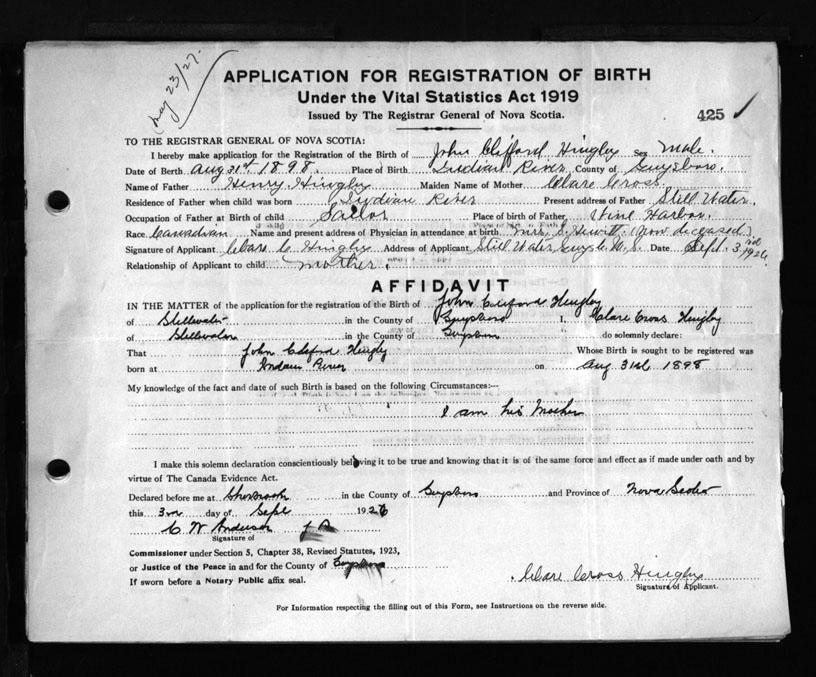 May 23/27.
APPLICATION FOR REGISTRATION OF BIRTH
Under the Vital Statistics Act 1919
Issued by The Registrar General of Nova Scotia.
425
TO THE REGISTRAR GENERAL OF NOVA SCOTIA:
I hereby make application for the Registration of the Birth of John Clifford Hingley Sex Male.
Date of Berth Aug 31st 1898. Place of Birth Indian River County of Guysboro.
Name of Father Henry Hingley Maiden Name of Mother Clare Cross.
Residence of Father when child was born Indian River Present address of Father Still Water.
Occupation of Father at Birth of child Sailor Place of birth of Father Wine Harbor.
Race Canadian Name and present address of Physician in attendance at birth, Mrs. Hewitt. (now deceased)
Signature of Applicant Clare C. Hingley Address of Applicant Still Water Guys Co N.S. Date Sept. 3rd 1926.
Relationship of Applicant to child mother.
AFFIDAVIT
IN THE MATTER of the application for the registration of the Birth of John Clifford Hingley
of Stillwater in the County of Guysboro I, Clare Cross Hingley
of Stillwater in the County of Guysboro do solemnly declare:
That John Clifford Hingley Whose Birth is sought to be registered was
born at Indian River on Aug 31st 1898
My knowledge of the fact and date of such Birth is based on the following Circumstances:—
I am his Mother
I make this solemn declaration conscientiously believing it to be true and knowing that it is of the same force and effect as if made under oath and by
virtue of The Canada Evidence Act.
Declared before me at Sherbrook in the County of Guysboro and Province of Nova Scotia
this 3rd day of Sept 1926
C W Anderson J P
Signature of
Commissioner under Section 5, Chapter 38, Revised Statutes, 1923,
or Justice of the Peace in and for the County of Guysboro
If sworn before a Notary Public affix seal.
Clare Cross Hingley
Signature of Applicant.
For Information respecting the filling out of this Form, see Instructions on the reverse side.